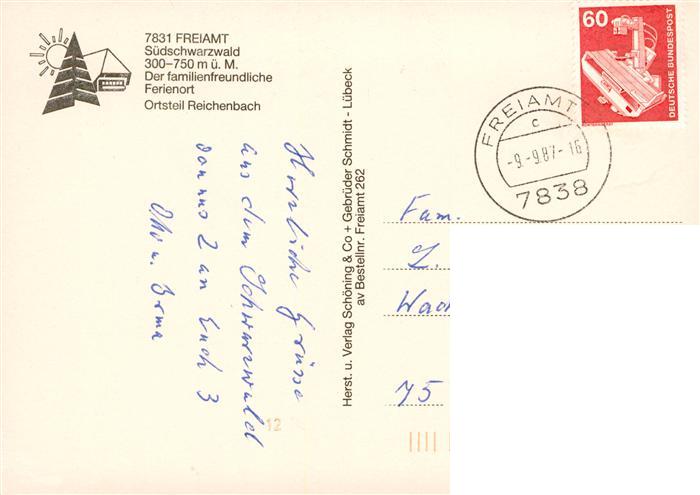 7831 FREIAMT
Südschwarzwald
300–750 m ü. M.
Der familienfreundliche
Ferienort
Ortsteil Reichenbach
Herzliche Grüsse
aus dem Schwarzwald
von uns 2 an Euch 3
Otto u. Irma
12
Herst. u. Verlag Schöning & Co + Gebrüder Schmidt - Lübeck
av Bestellnr. Freiamt 262
60
DEUTSCHE BUNDESPOST
FREIAMT
c
-9.-9.87-16
7838
Fam.
75